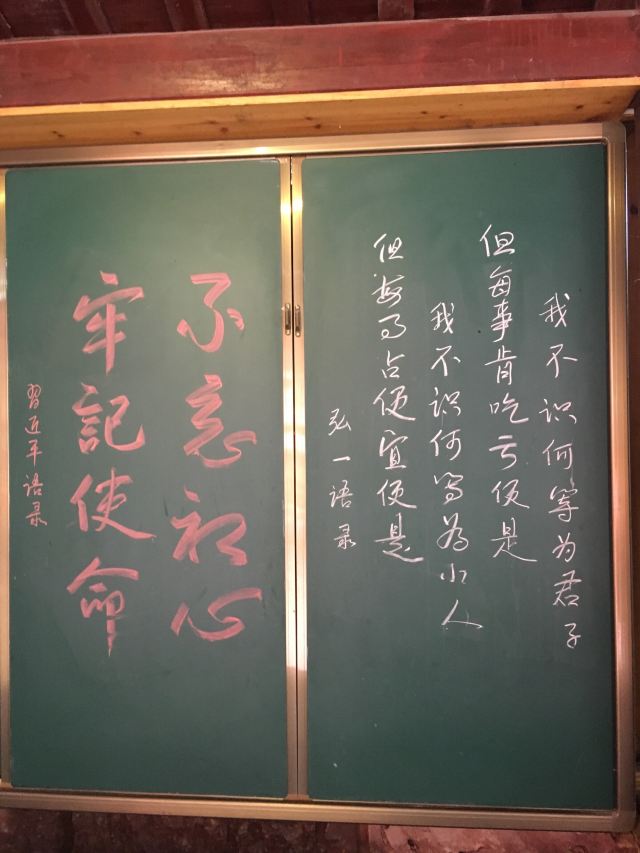 我不识何等为君子
但每事肯吃亏便是
我不识何等为小人
但每事占便宜便是
弘一语录
不忘初心
牢記使命
習近平语录